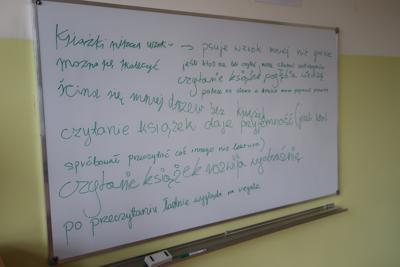 Książki niszczą wzrok → psuje wzrok mniej niż
można się skaleczyć jeśli ktoś nie lubi czytać, może
czytanie książek pogłębia wiedzę
ścina się mniej drzew bez książek
czytanie książek daje przyjemność (jeśli ktoś
spróbował przeczytać coś innego niż lektura)
czytanie książek rozwija wyobraźnię
po przeczytaniu ładnie wygląda na regale